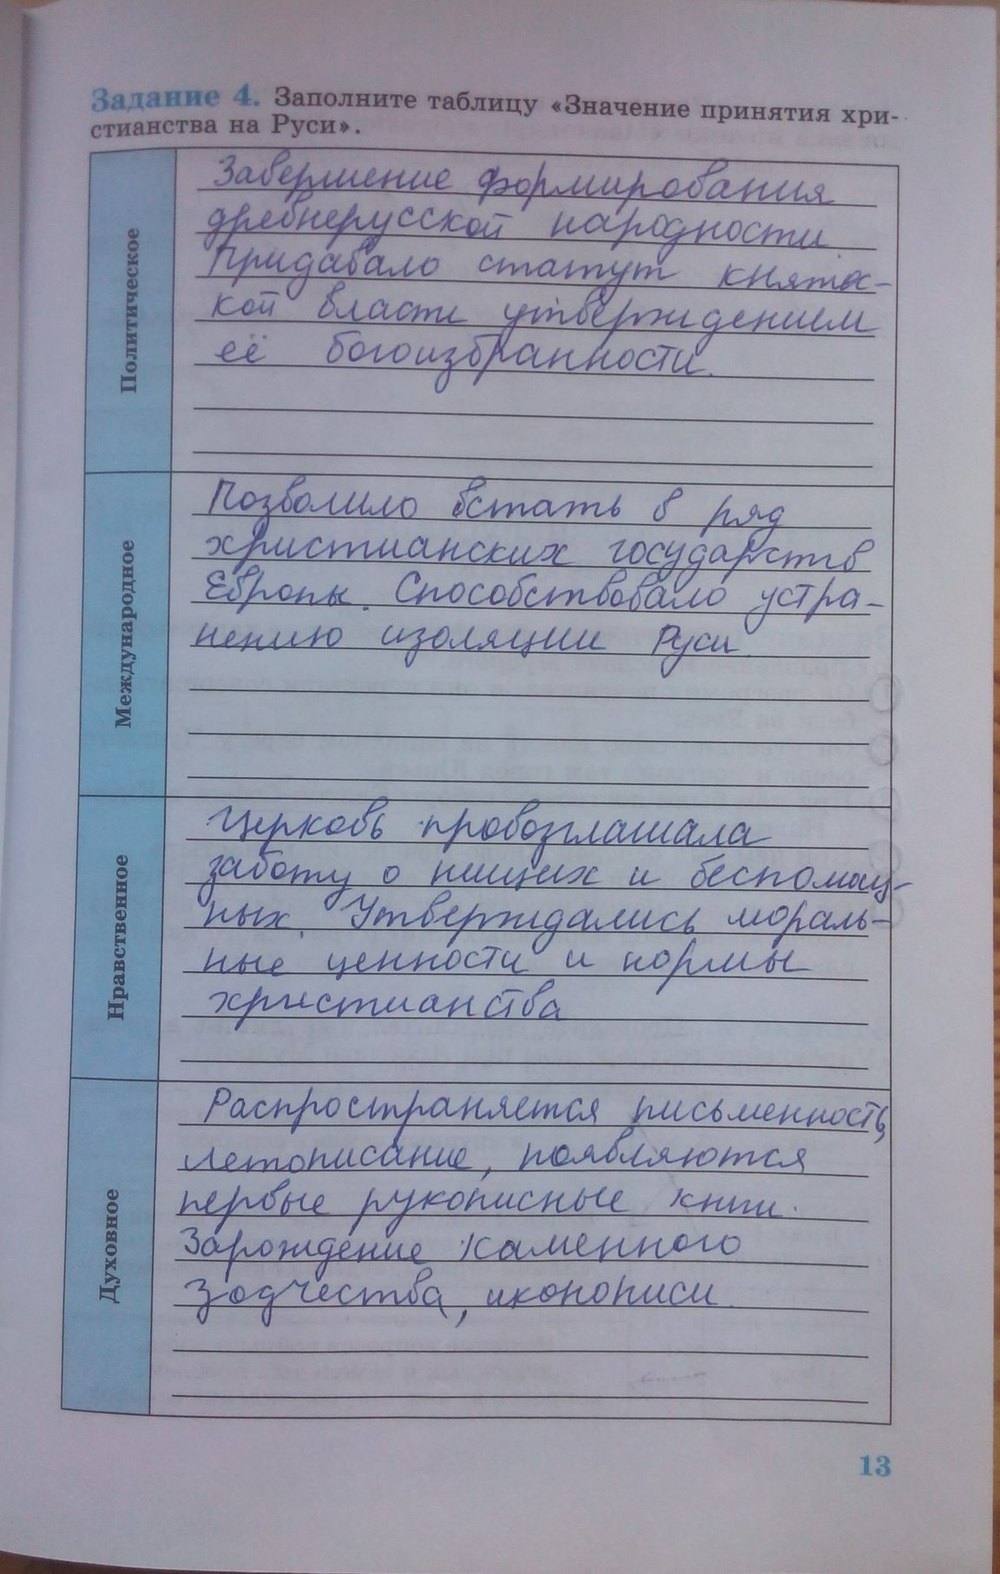 Задание 4. Заполните таблицу «Значение принятия хри-
стианства на Руси».
Политическое
Завершение формирования
древнерусской народности
Придавало статут княжес-
кой власти утверждением
её богоизбранности.
Международное
Позволило встать в ряд
христианских государств
Европы. Способствовало устра-
нению изоляции Руси
Нравственное
Церковь провозглашала
заботу о нищих и беспомощ-
ных. Утверждались мораль-
ные ценности и нормы
христианства
Духовное
Распространяется письменность,
летописание, появляются
первые рукописные книги.
Зарождение каменного
зодчества, иконописи.
13